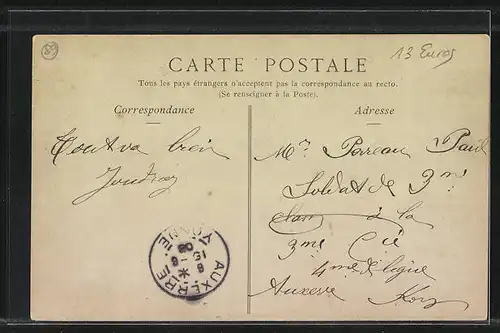 89
13 Euros
CARTE POSTALE
Tous les pays étrangers n'acceptent pas la correspondance au recto.
(Se renseigner à la Poste).
Correspondance
Adresse
Tout va bien
Mr Perreau Paul
Soldat de 2me
à la
3me Cie
4me de ligne
Auxerre
AUXERRE
YONNE